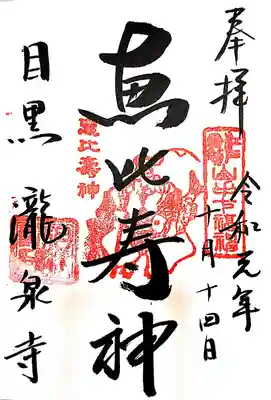 奉拝
令和元年
十月十四日
恵比寿神
恵比寿神
目黒
瀧泉寺